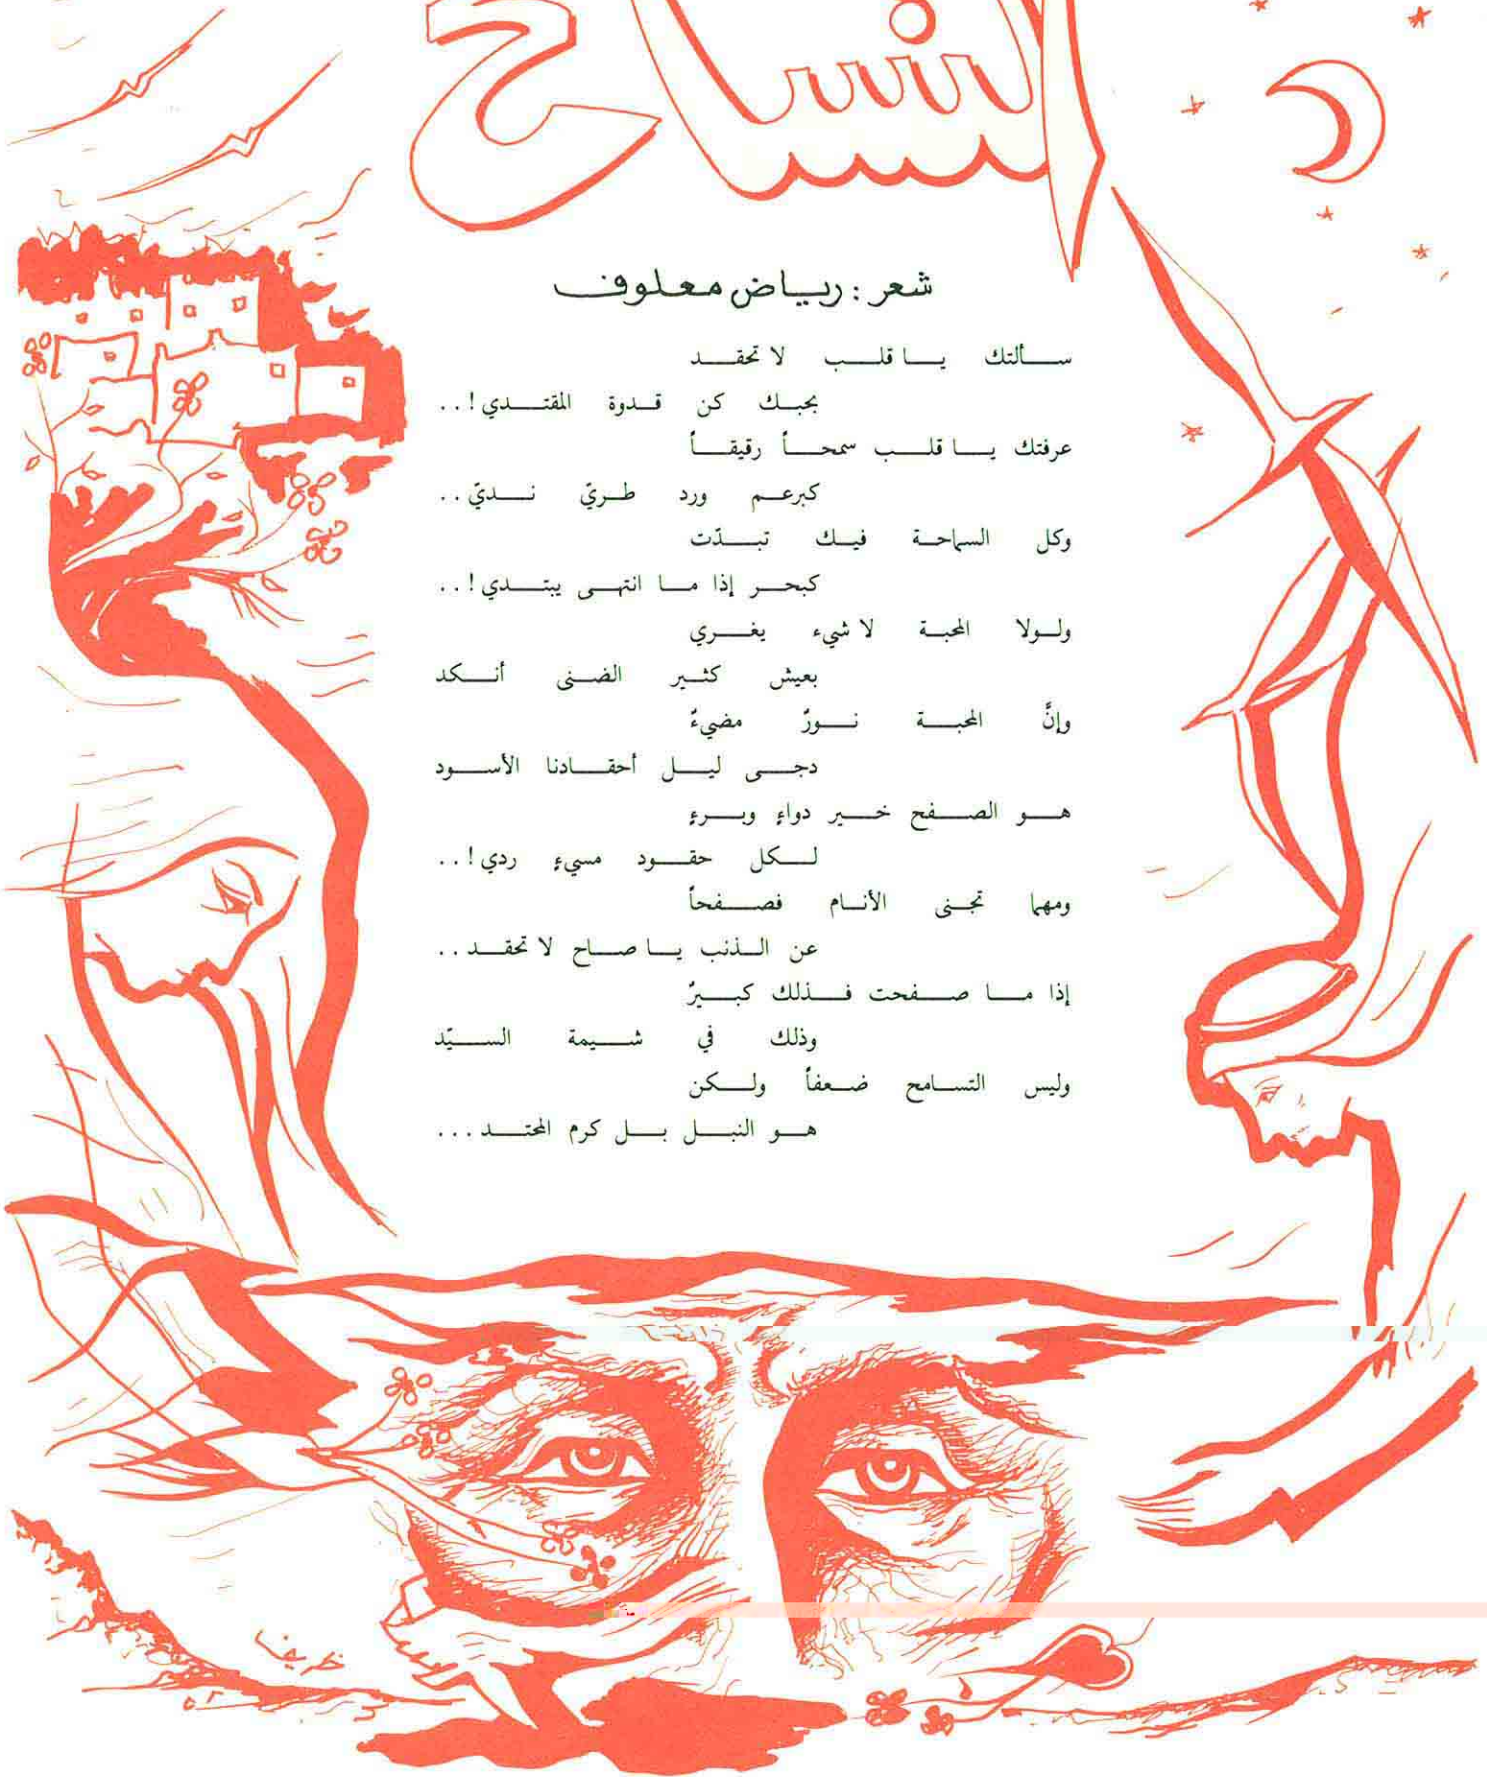 شعر : رياض معلوف
سألتك يا قلب لا تحقد
بحبك كن قدوة المقتدي ! . .
عرفتك يا قلب سمحاً رقيقاً
كبرعم ورد طريّ نديّ . .
وكل السماحة فيك تبدّت
كبحر إذا ما انتهى يبتدي ! . .
ولولا المحبة لا شيء يغري
بعيش كثير الضنى أنكد
وإنَّ المحبة نورٌ مضيءٌ
دجى ليل أحقادنا الأسود
هو الصفح خير دواءٍ وبرءٍ
لكل حقود مسيءٍ ردي ! . .
ومهما تجنى الأنام فصفحاً
عن الذنب يا صاح لا تحقد . .
إذا ما صفحت فذلك كبيرٌ
وذلك في شيمة السيّد
وليس التسامح ضعفاً ولكن
هو النبل بل كرم المحتد . . .
ظريفا